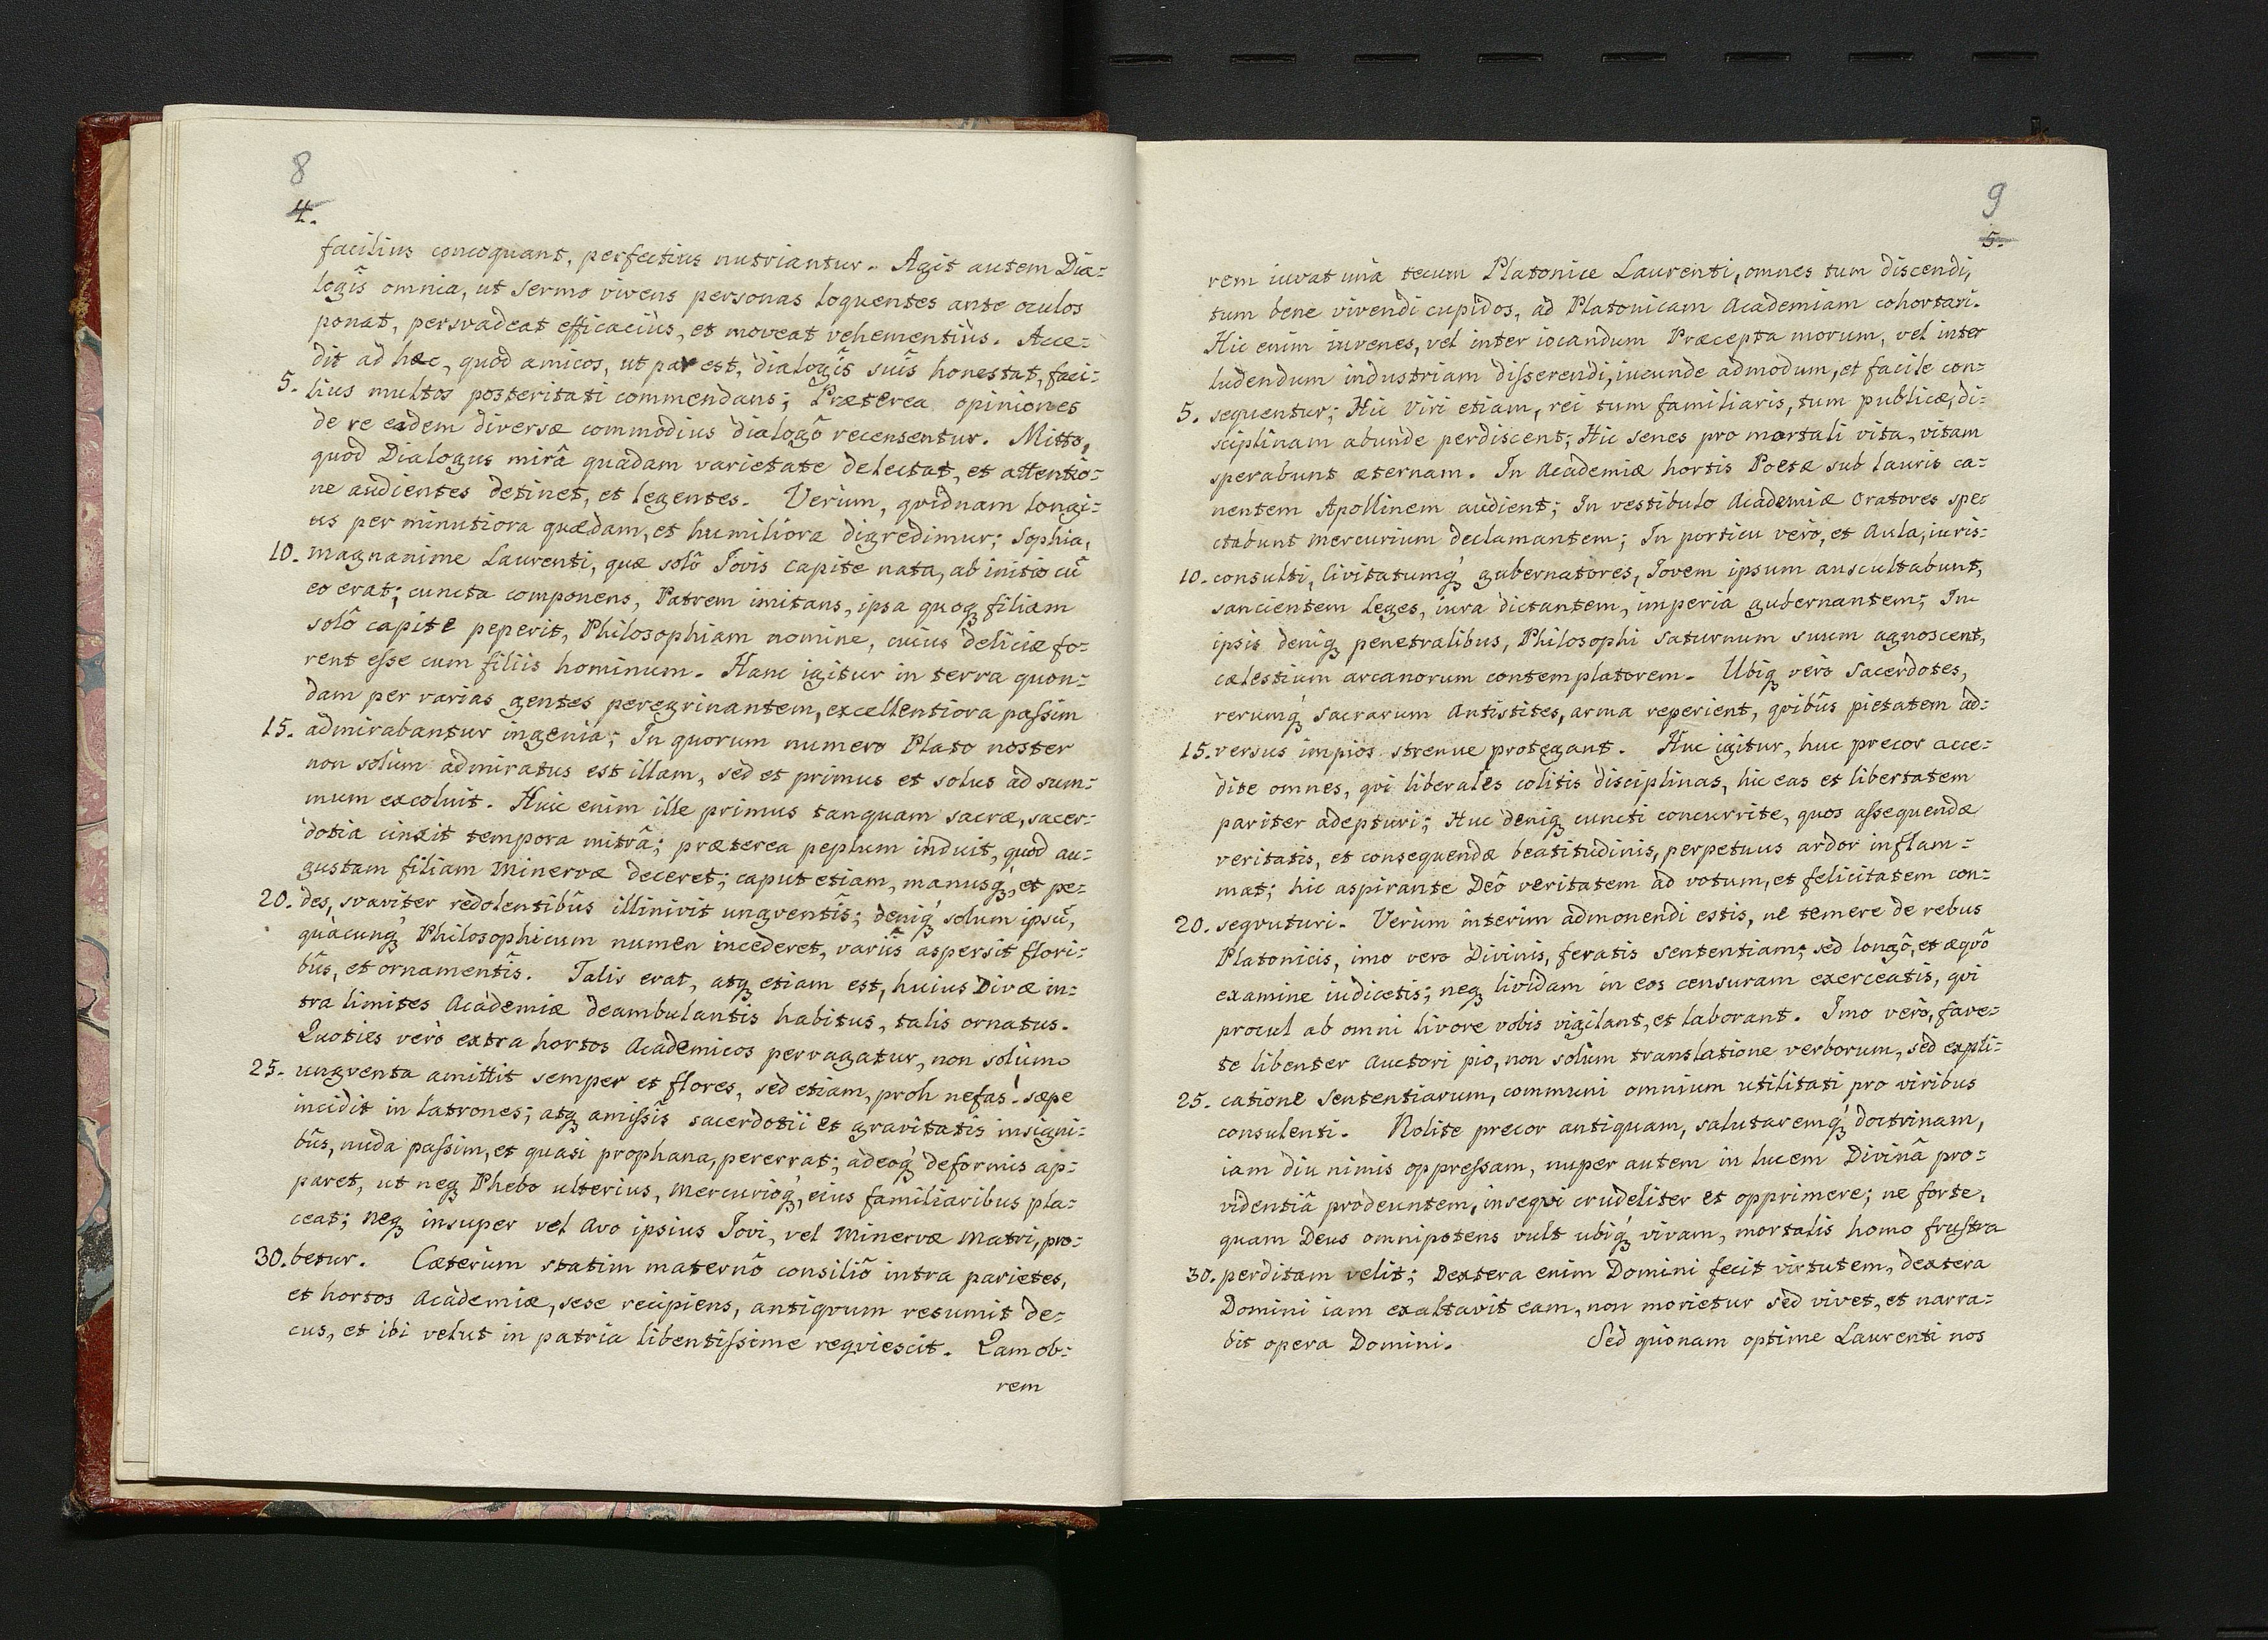 8
4.
facilius concoquant, perfectius nutriantur. Agit autem Dia:
logîs omnia, ut sermo vivens personas loquentes ante oculos
ponat, persvadeat efficaciùs, et moveat vehementiùs. Acce:
dit ad hæc, quòd amicos, ut par est, dialogîs suîs honestat, faci:
5. lius multos posteritati commendans; Præterea opiniones
de re eadem diversæ commodius dialogô recensentur. Mitto,
quod Dialogus mirâ quadam varietate delectat, et attentio:
ne audientes detinet, et legentes. Verùm, qvidnam longi:
us per minutiora quædam, et humiliora digredimur; Sophia,
10. magnanime Laurenti, quæ solô Jovis capite nata, ab initio cū
eo erat; cuncta componens, Patrem imitans, ipsa quoqȝ filiam
solô capite peperit, Philosophiam nomine, cuius deliciæ fo:
rent eſse cum filiis hominum. Hanc igitur in terra quon:
dam per varias gentes peregrinantem, excellentiora paſsim
15. admirabantur ingenia; In quorum numero Plato noster
non solùm admiratus est illam, sed et primus et solus ad sum:
mum excoluit. Huic enim ille primus tanquam sacræ, sacer:
dotia cinxit tempora mitrâ; præterea peplum induit, quod au:
gustam filiam Minervæ deceret; caput etiam, manusqȝ́, et pe:
20. des, svaviter redolentibûs illinivit ungventîs; deniqȝ́ solum ipsū,
quàcunqȝ́ Philosophicum numen incederet, variîs aspersit flori:
bûs, et ornamentîs. Talis erat, atqȝ etiam est, huius Divæ in:
tra limites Academiæ deambulantis habitus, talis ornatus.
Quoties verò extra hortos Academicos pervagatur, non solùm
25. ungventa amittit semper et flores, sed etiam, proh nefas! sæpe
incidit in latrones; atqȝ amiſsîs sacerdotii et gravitatis insigni:
bûs, nuda paſsim, et quasi prophana, pererrat; adeoqȝ́ deformis ap:
paret, ut neqȝ Phebo ulterius, Mercurioqȝ́, eius familiaribus pla:
ceat; neqȝ insuper vel Avo ipsius Jovi, vel Minervæ Matri, pro:
30. betur. Cæterùm statim maternô consiliô intra parietes,
et hortos Academiæ, sese recipiens, antiqvum resumit de:
cus, et ibi velut in patria libentiſsime reqviescit. Qamob:
rem
9
5.
rem iuvat unà tecum Platonice Laurenti, omnes tum discendi,
tum bene vivendi cupidos, ad Platonicam Academiam cohortari.
Hic enim iuvenes, vel inter iocandum Præcepta morum, vel inter
ludendum industriam diſserendi, iucunde admodum, et facile con:
5. sequentur; Hic Viri etiam, rei tum familiaris, tum publicæ, di:
sciplinam abunde perdiscent; Hic senes pro mortali vita, vitam
sperabunt æternam. In Academiæ hortis Poetæ sub lauris ca:
nentem Apollinem audient; In vestibulo Academiæ Oratores spe:
ctabunt Mercurium declamantem; In porticu verò, et Aula, iuris:
10. consulti, Civitatumqȝ́ gubernatores, Jovem ipsum auscultabunt,
sancientem leges, iura dictantem, imperia gubernantem; In
ipsis deniqȝ penetralibus, Philosophi Saturnum suum agnoscent,
cælestium arcanorum contemplatorem. Ubiqȝ verò Sacerdotes,
rerumqȝ́ sacrarum Antistites, arma reperient, qvibûs pietatem ad:
15. versus impios strenue protegant. Huc igitur, huc precor acce:
dite omnes, qvi liberales colitis disciplinas, hic eas et libertatem
pariter adepturi; Huc deniqȝ cuncti concurrite, quos aſsequendæ
veritatis, et consequendæ beatitudinis, perpetuus ardor inflam:
mat; hic aspirante Deô veritatem ad votum, et felicitatem con:
20. seqvuturi. Verùm interim admonendi estis, ne temere de rebus
Platonicis, imo vero Divinis, feratis sententiam; sed longô, et æqvô
examine iudicetis; neqȝ lividam in eos censuram exerceatis, qvi
procul ab omni livore vobis vigilant, et laborant. Imo verò, fave:
te libenter Auctori pio, non solùm translatione verborum, sed expli:
25. catione sententiarum, communi omnium utilitati pro viribus
consulenti. Nolite precor antiquam, salutaremqȝ́ doctrinam,
iam diu nimis oppreſsam, nuper autem in lucem Divinâ pro:
videntiâ prodeuntem, inseqvi crudeliter et opprimere; ne forte,
quam Deus omnipotens vult ubiqȝ́ vivam, mortalis homo frustra
30. perditam velit; Dextera enim Domini fecit virtutem, dextera
Domini iam exaltavit eam, non morietur sed vivet, et narra:
bit opera Domini. Sed quonam optime Laurenti nos